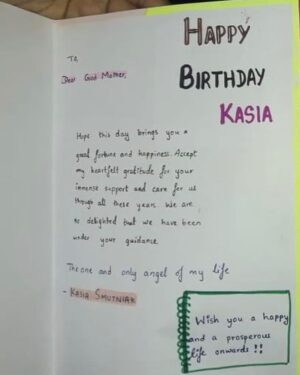 HAPPY
BIRTHDAY
KASIA
To,
Dear God Mother,
Hope this day brings you a
great fortune and happiness. Accept
my heartfelt gratitude for your
immense support and care for us
through all these years. We are
so delighted that we have been
under your guidance.
The one and only angel of my life
- KASIA SMUTNIAK
Wish you a happy
and a prosperous
life onwards !!